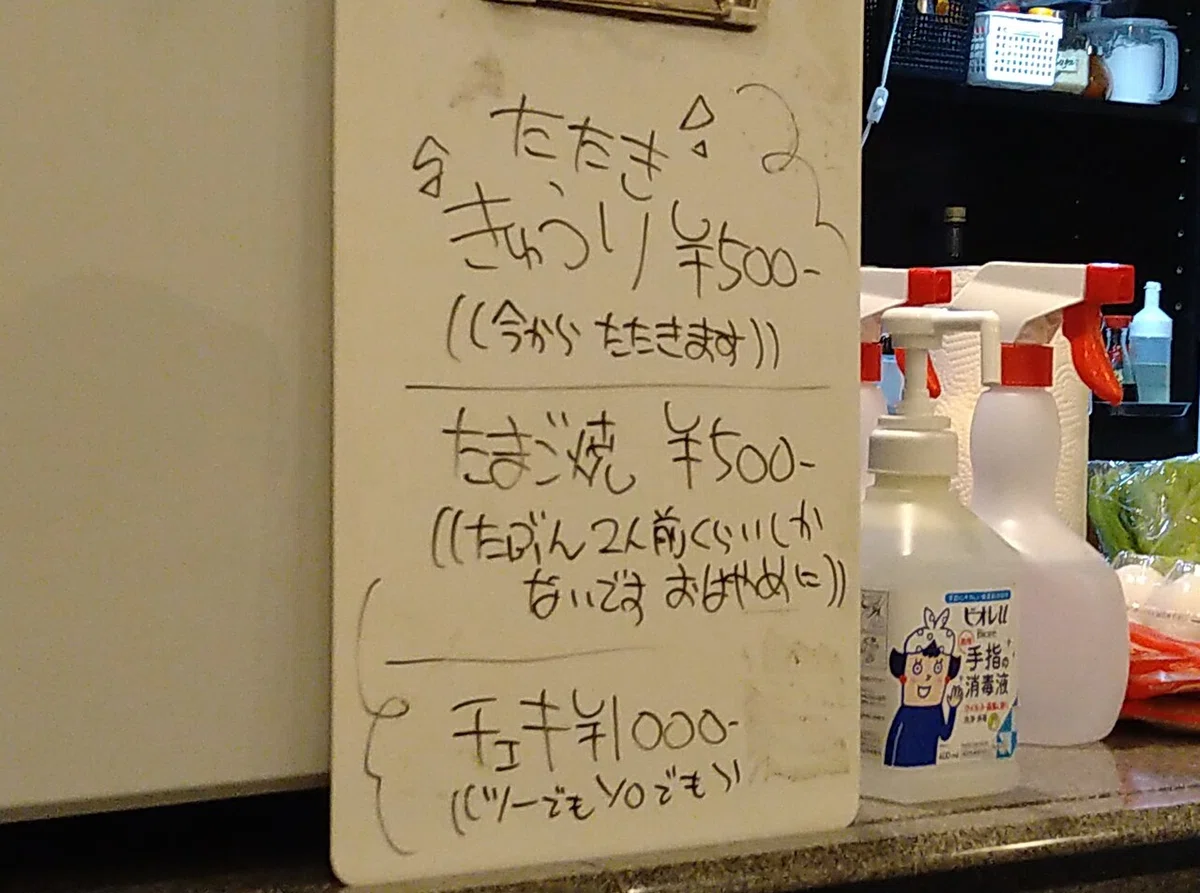 たたき
きゅうり ¥500-
((今から たたきます))
たまご焼 ¥500-
((たぶん 2人前くらいしか
ないです おはやめに))
チェキ ¥1000-
((ツーでもソロでも))
ビオレu
Biore
手指の
消毒液
400mL